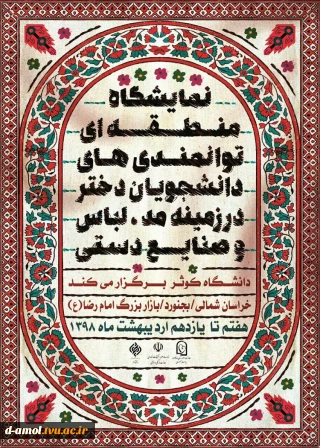 نمایشگاه
منطقه ای
توانمندی های
دانشجویان دختر
در زمینه مد، لباس
و صنایع دستی
دانشگاه کوثر برگزار می کند
خراسان شمالی/بجنورد/بازار بزرگ امام رضا(ع)
هفتم تا یازدهم اردیبهشت ماه ۱۳۹۸
d-amol.tvu.ac.ir